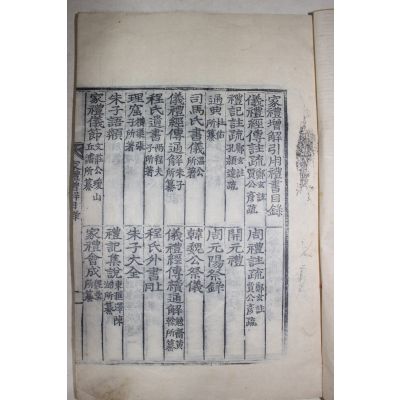 家禮增解引用禮書目錄
儀禮經傳註疏 鄭玄註 賈公彦疏 周禮註疏 鄭玄註 賈公彦疏
禮記註疏 孔穎達疏 開元禮
通典 杜佑所纂 周元陽祭錄
司馬氏書儀 溫公所著 韓魏公祭儀
儀禮經傳通解 朱子所纂 儀禮經傳續通解 勉齋黃榦所纂
程氏遺書 兩程夫子所著 程氏外書 同上
理窟 橫渠張子所著 朱子大全
朱子語類 禮記集說 東匯澤陳澔所纂
家禮儀節 文莊公瓊山丘濬所纂 家禮會成 所纂
家禮增解目錄
一